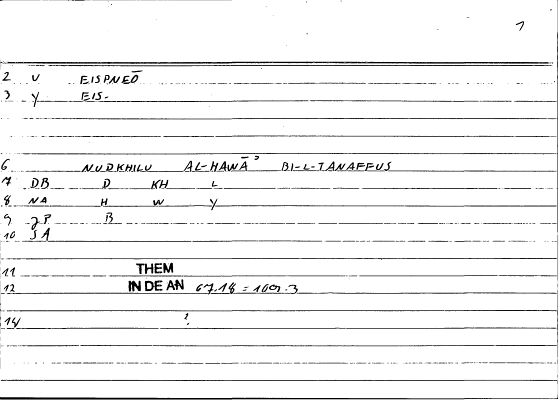 1
2 V EISPNEŌ
3 Y EIS-
6 NUDKHILU AL-HAWĀʾ BI-L-TANAFFUS
7 DB D KH L
8 NA H W Y
9 JP B
10 SA
11 THEM
12 IN DE AN 67.18 = 109.3
14